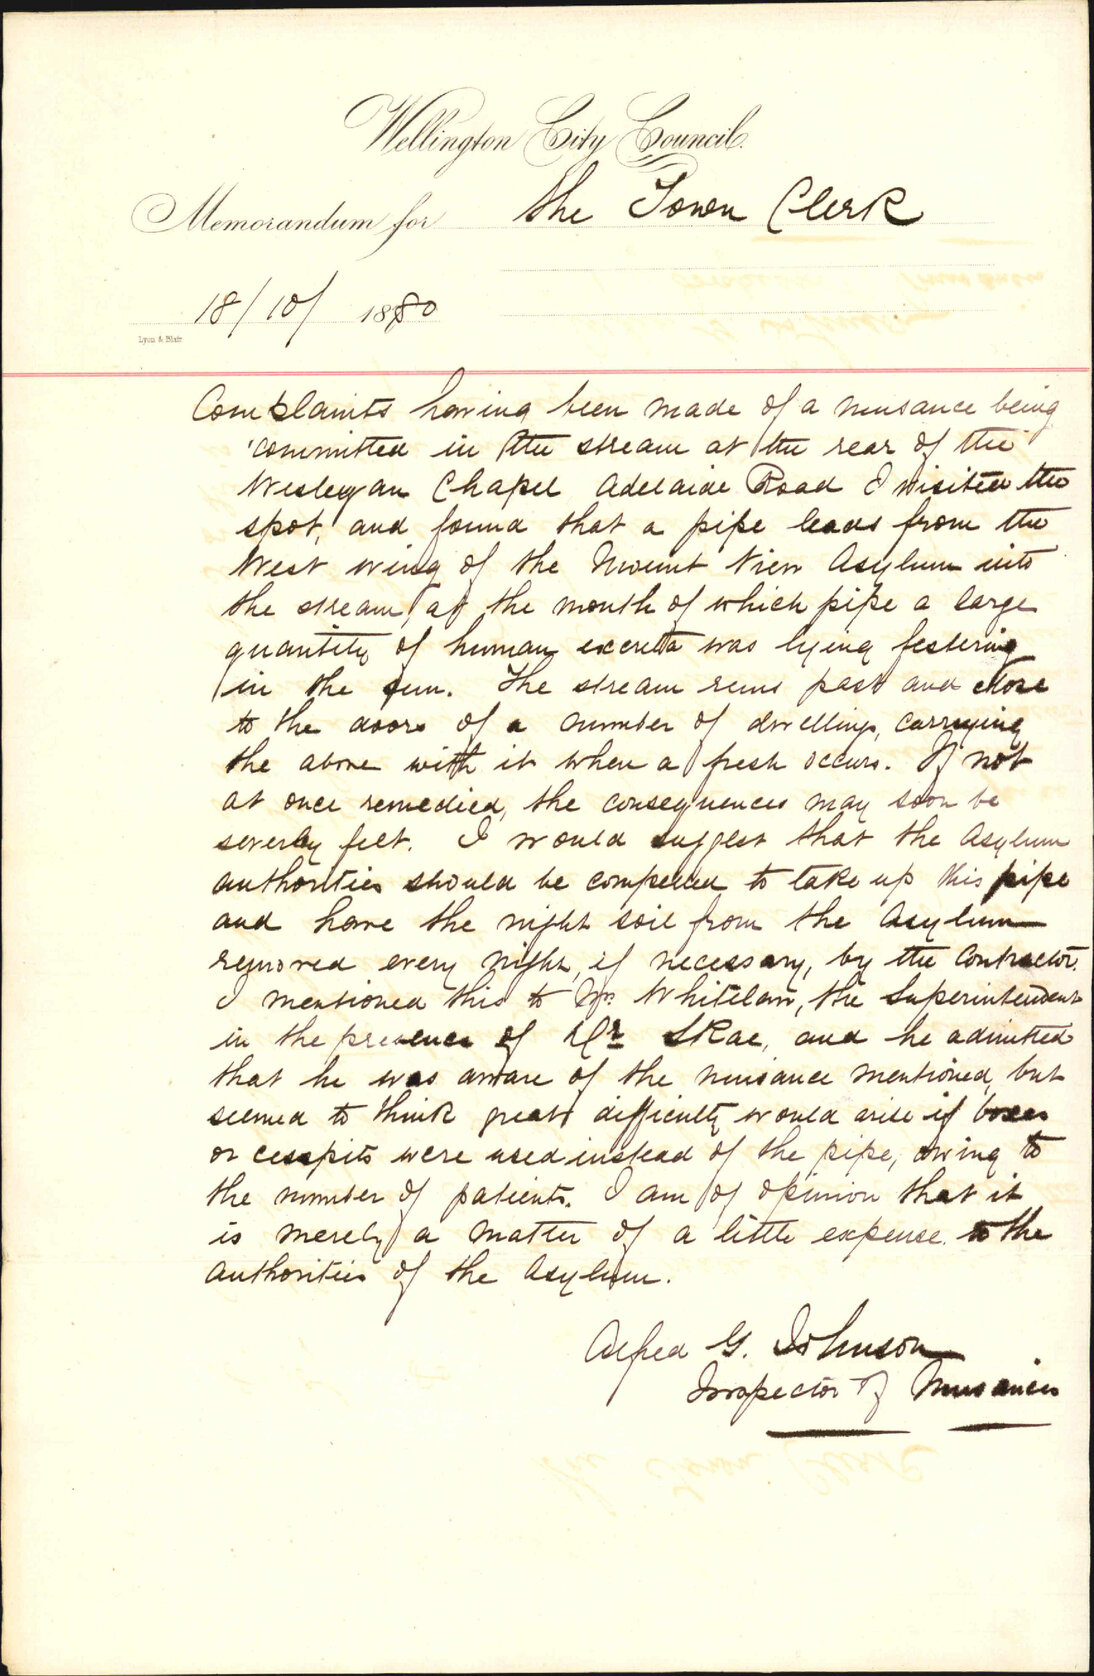 Wellington City Council.
Memorandum for the Town Clerk
18/10/1880
Lyon & Blair
Complaints having been made of a nuisance being
committed in the stream at the rear of the
Wesleyan Chapel Adelaide Road I visited the
spot, and found that a pipe leads from the
West wing of the Mount View Asylum into
the stream, at the mouth of which pipe a large
quantity of human excreta was lying festering
in the sun. The stream runs past and close
to the doors of a number of dwellings, carrying
the above with it when a fresh occurs. If not
at once remedied, the consequences may soon be
severely felt. I would suggest that the Asylum
authorities should be compelled to take up this pipe
and have the night soil from the Asylum
removed every night, if necessary, by the Contractor.
I mentioned this to Mr. Whitelaw, the Superintendent
in the presence of Dr. Skae, and he admitted
that he was aware of the nuisance mentioned, but
seemed to think great difficulty would arise if boxes
or cesspits were used instead of the pipe, owing to
the number of patients. I am of opinion that it
is merely a matter of a little expense to the
authorities of the Asylum.
Alfred G. Johnson
Inspector of Nuisances